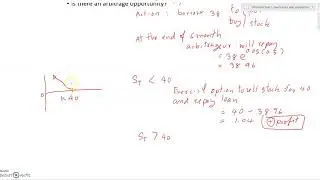 • Is there an arbitrage opportunity?
Action : borrow 38 to
buy 1 stock
At the end of 6 month
arbitrageur will repay
= 38 e^0.05(0.5)
= 38.96
S_T < 40
Exercise option to sell stock for 40
and repay loan
= 40 - 38.96
= 1.04 + profit
S_T > 40
K
0
K 40